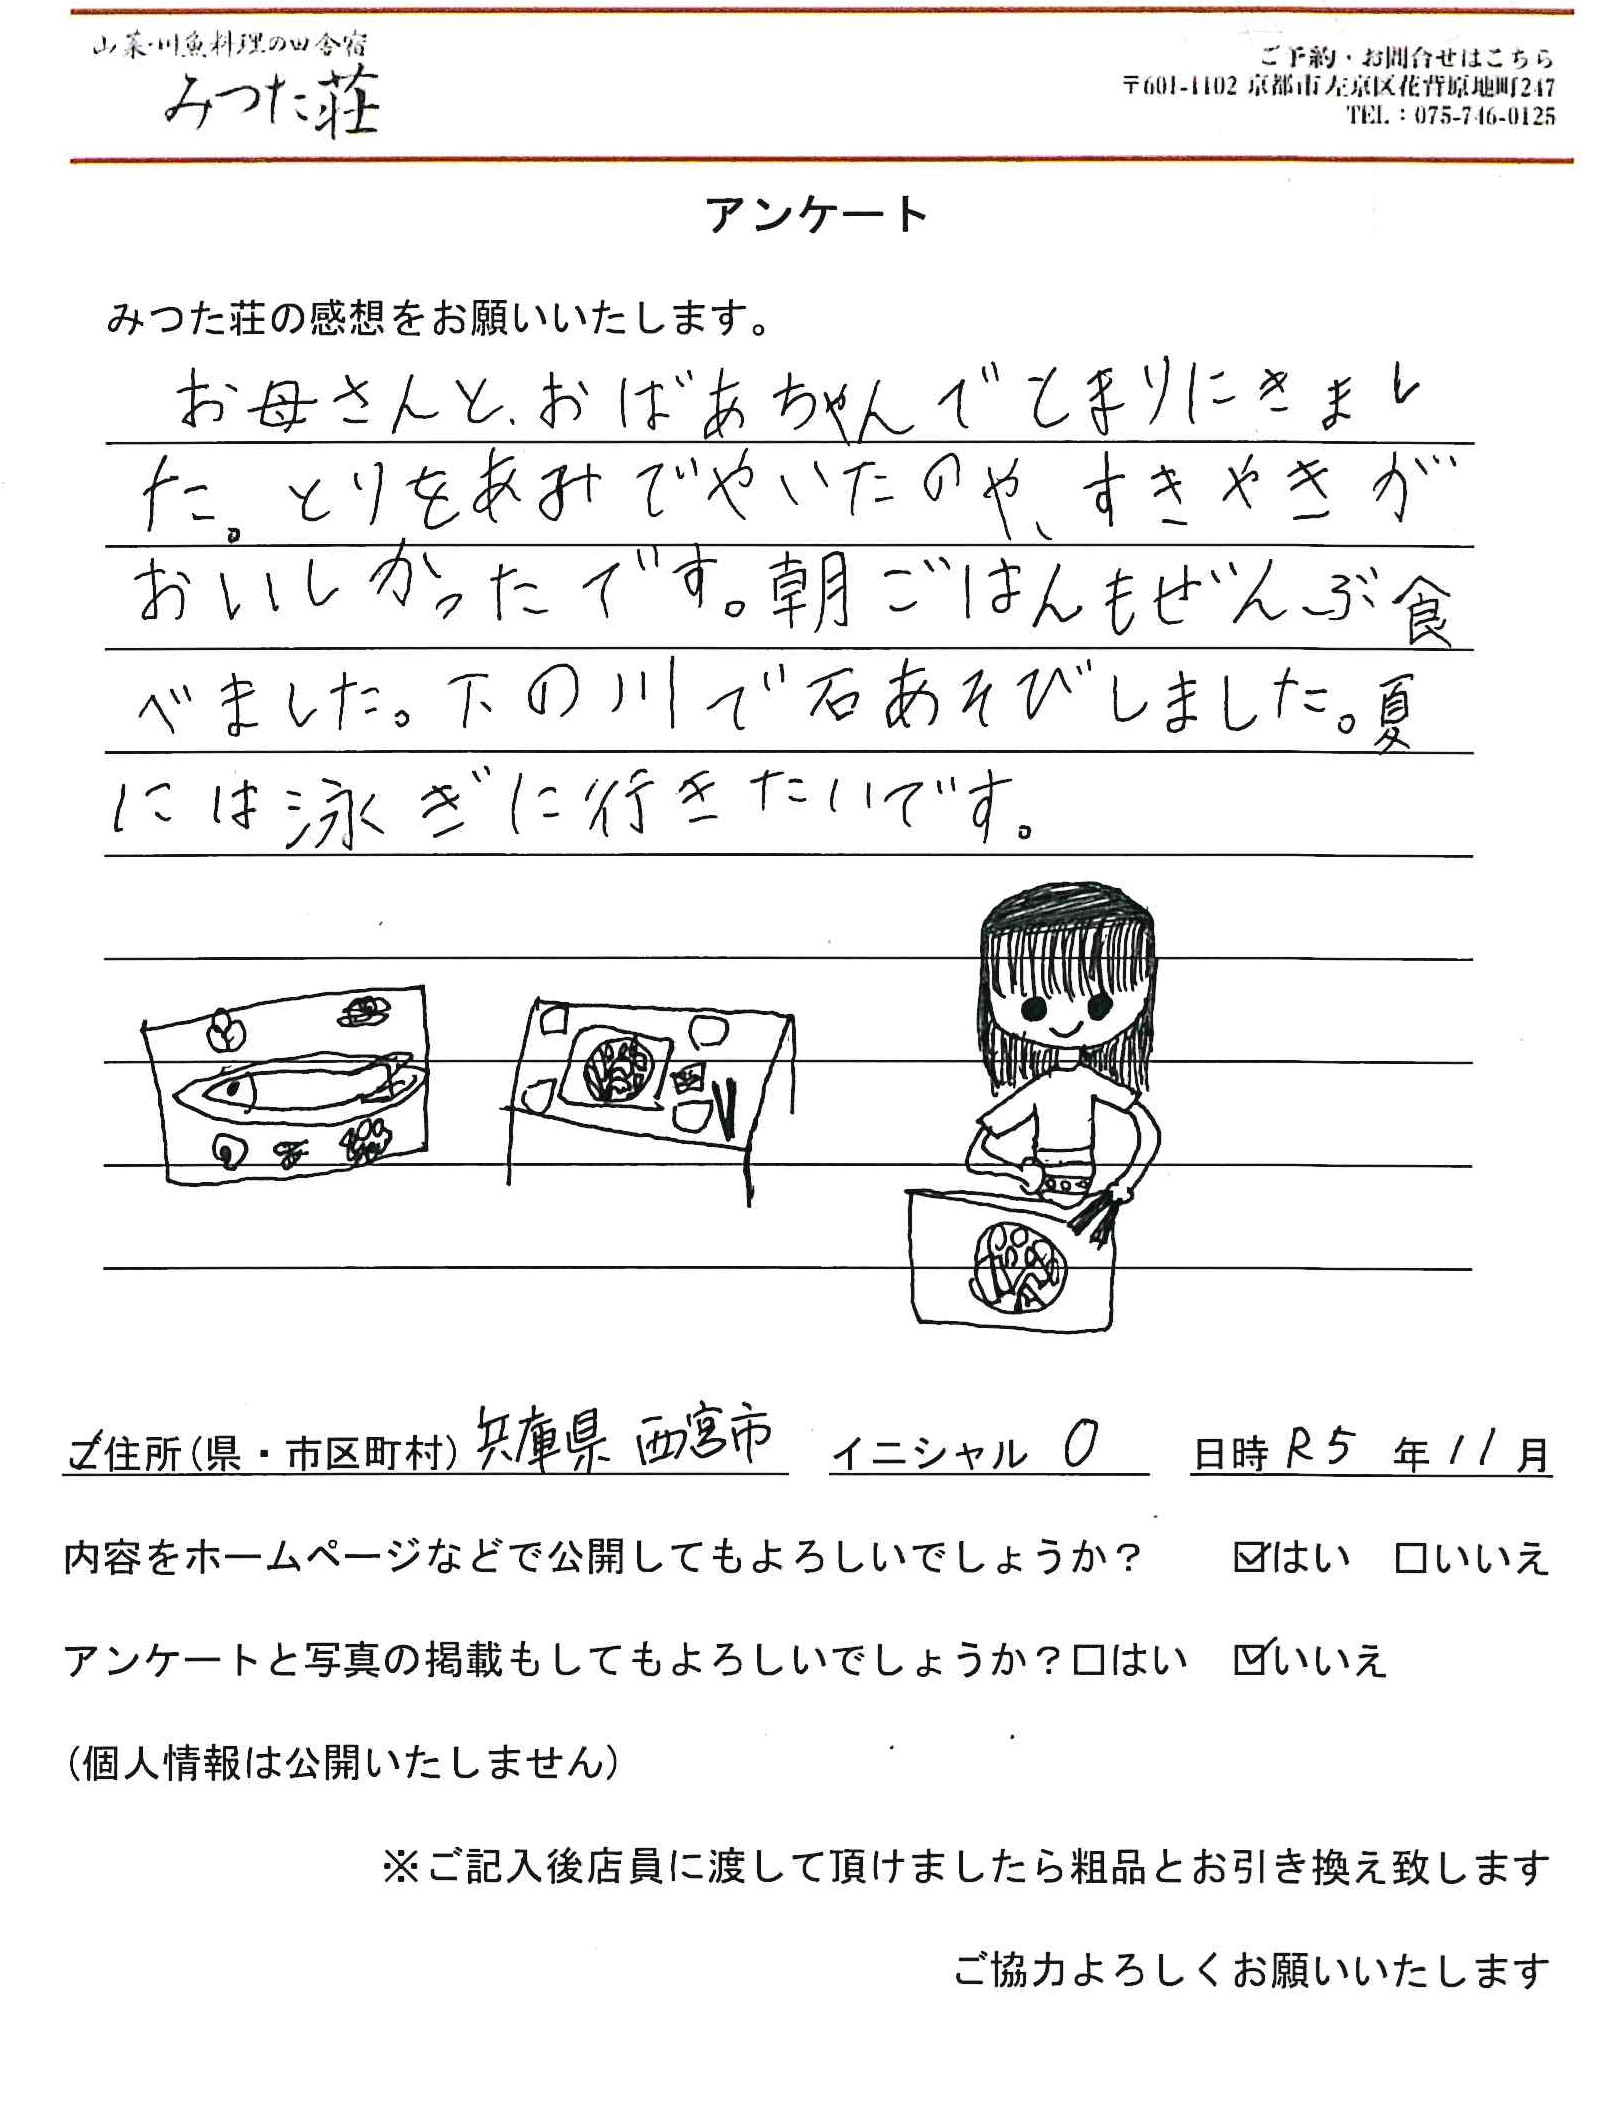 山菜・川魚料理の田舎宿
みつた荘
ご予約・お問合せはこちら
〒601-1102 京都市左京区花背原地町247
TEL：075-746-0125
アンケート
みつた荘の感想をお願いいたします。
お母さんと、おばあちゃんでとまりにきまし
た。とりをあみでやいたのや、すきやきが
おいしかったです。朝ごはんもぜんぶ食
べました。下の川で石あそびしました。夏
には泳ぎに行きたいです。
ご住所(県・市区町村) 兵庫県 西宮市 イニシャル O 日時 R5 年 11 月
内容をホームページなどで公開してもよろしいでしょうか？ ☑はい □いいえ
アンケートと写真の掲載もしてもよろしいでしょうか？□はい ☑いいえ
(個人情報は公開いたしません)
※ご記入後店員に渡して頂けましたら粗品とお引き換え致します
ご協力よろしくお願いいたします